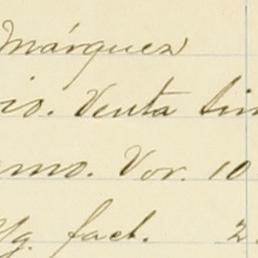 Márquez
io. Venta
mo. Vor. 10
fact. 2